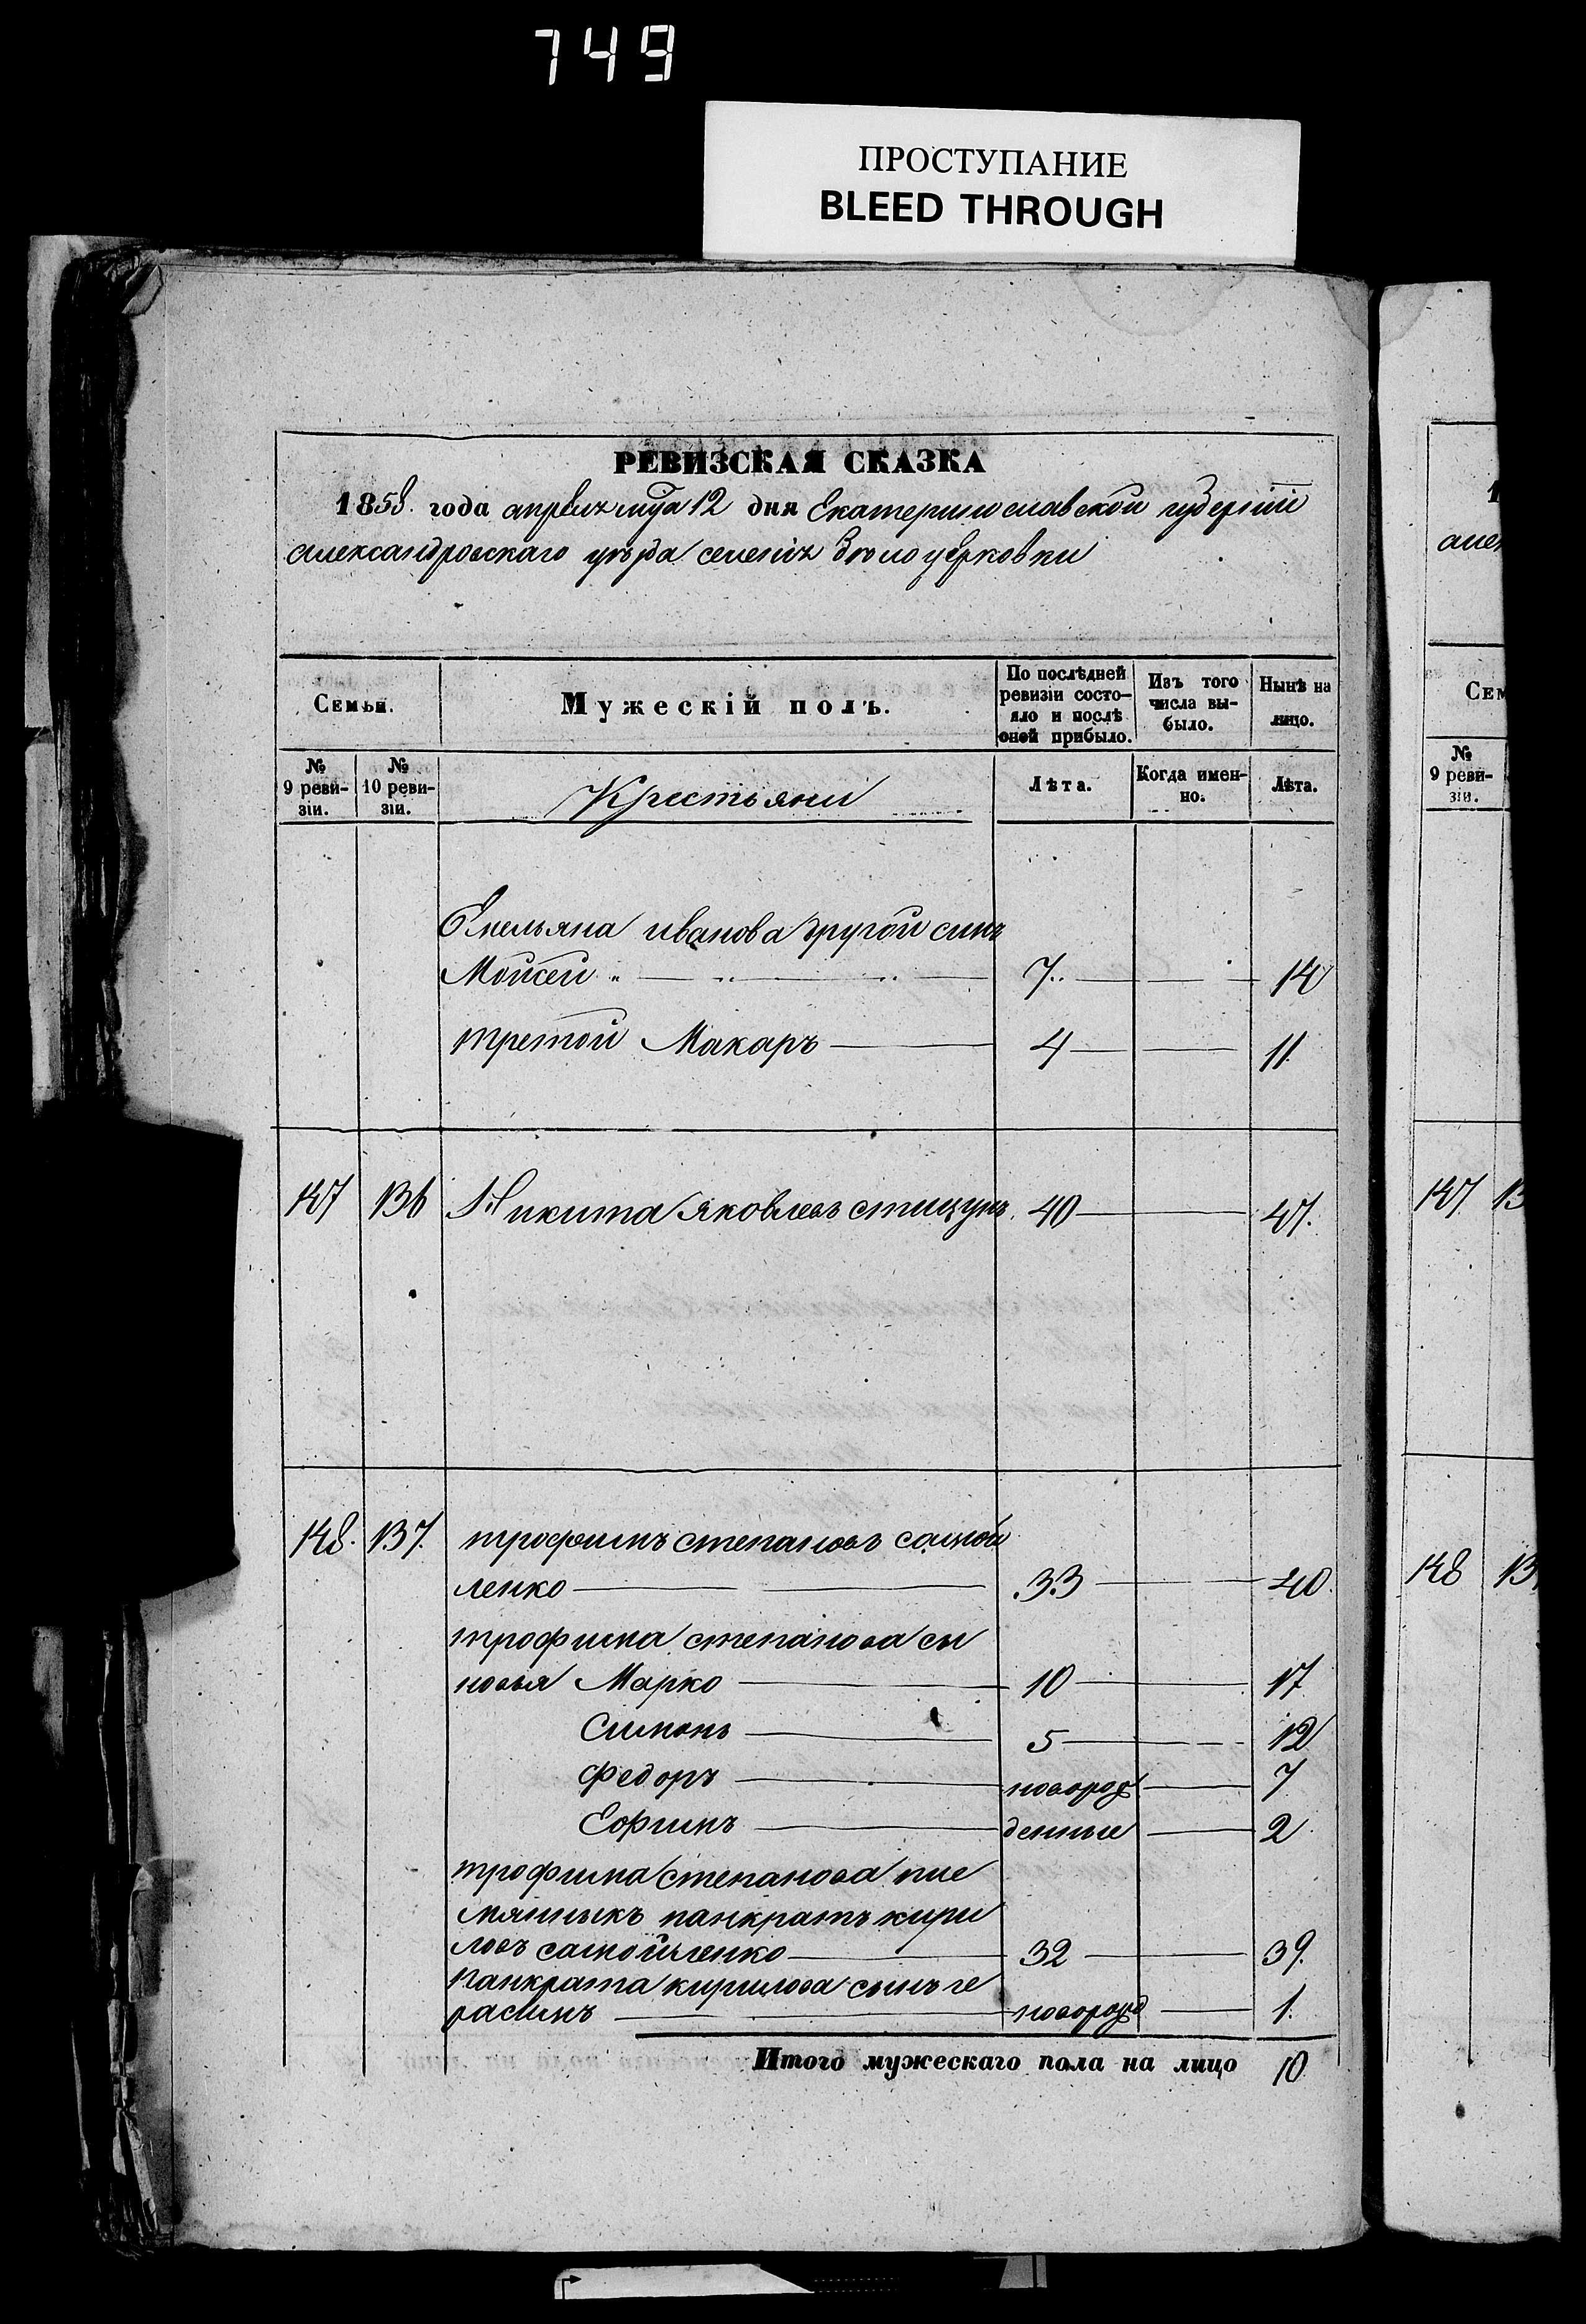 749
ПРОСТУПАНИЕ
BLEED THROUGH
РЕВИЗСКАЯ СКАЗКА
1858. года апреля мца 12 дня Екатеринославской губернии
александровскаго уезда селения Белоцерковки
Семьи.
Мужескій полъ.
По послѣдней ревизіи состояло и послѣ оной прибыло.
Изъ того числа выбыло.
Нынѣ на лицо.
№ 9 ревизіи.
№ 10 ревизіи.
Крестьяни
Лѣта.
Когда именно.
Лѣта.
Емельяна иванова другой синъ
Мойсей 7 14
третой Макаръ 4 11
147 136 Никита яковлевъ 40 47.
148. 137. трофимъ степановъ самой
ленко 33 40.
трофима степанова сы
новья Марко 10 17
Симонъ 5 12
Федоръ новорож 7
Ефимъ денные 2
трофима степанова пле
мянныкъ панкратъ кири
ловъ самойленко 32 39.
панкрата кирилова сынъ ге
расимъ новорожд 1.
Итого мужескаго пола на лицо 10
1
алек
Сем
№ 9 ревизіи.
147 13
148 13